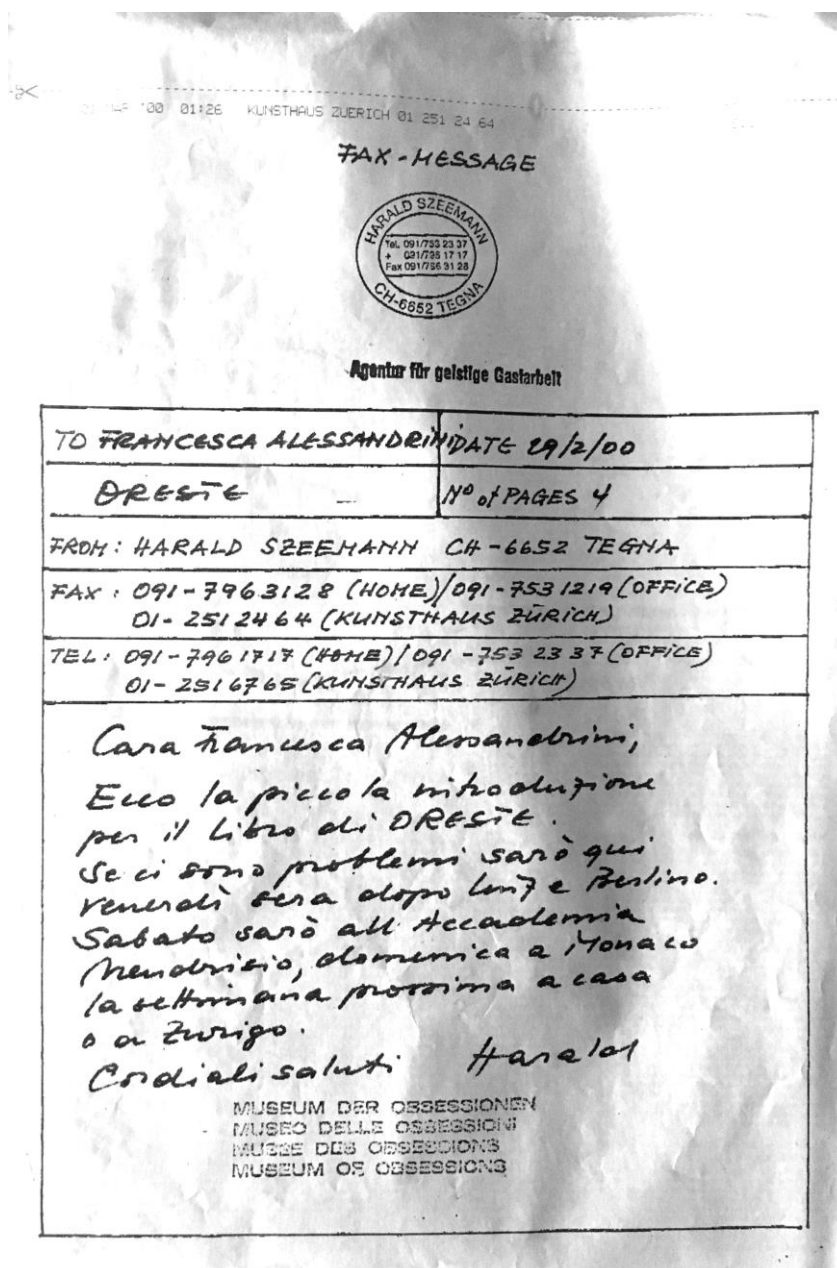 '00 01:26 KUNSTHAUS ZUERICH 01 251 24 64
FAX-MESSAGE
HARALD SZEEMANN
Tel. 091/753 23 37
+ 091/796 17 17
Fax 091/796 31 28
CH-6652 TEGNA
Agentur für geistige Gastarbeit
TO FRANCESCA ALESSANDRINI DATE 29/2/00
ORESTE Nº of PAGES 4
FROM: HARALD SZEEMANN CH-6652 TEGNA
FAX: 091-7963128 (HOME)/091-7531219 (OFFICE)
01-2512464 (KUNSTHAUS ZÜRICH)
TEL: 091-7961717 (HOME)/091-753 23 37 (OFFICE)
01-2516765 (KUNSTHAUS ZÜRICH)
Cara Francesca Alessandrini,
Ecco la piccola introduzione
per il libro di ORESTE.
Se ci sono problemi sarò qui
venerdì sera dopo Linz e Berlino.
Sabato sarò all Accademia
Mendrisio, domenica a Monaco
la settimana prossima a casa
o a Zurigo.
Cordiali saluti Harald
MUSEUM DER OBSESSIONEN
MUSEO DELLE OSSESSIONI
MUSEE DES OBSESSIONS
MUSEUM OF OBSESSIONS